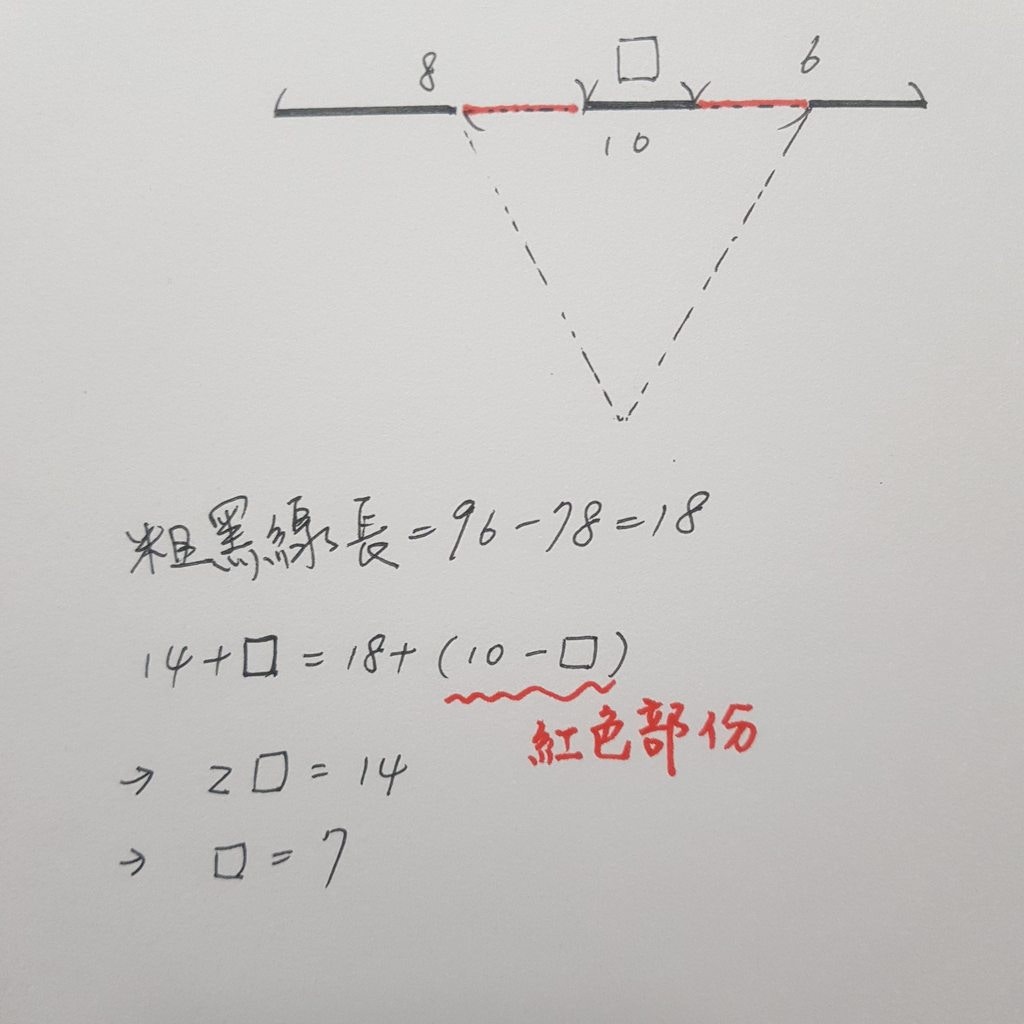 8 □ 6
10
粗黑線長=96-78=18
14+□=18+(10-□)
紅色部份
→ 2□=14
→ □=7